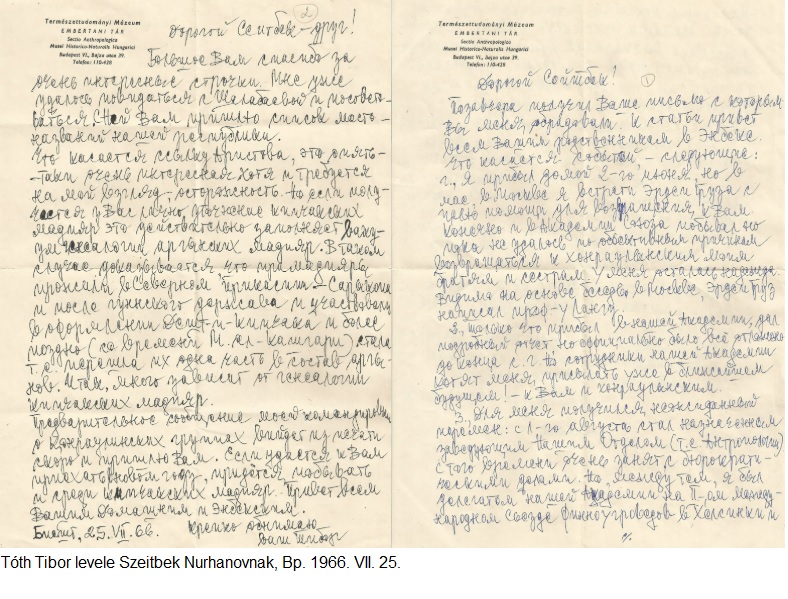 Természettudományi Múzeum
EMBERTANI TÁR
Sectio Anthropologica
Musei Historico-Naturalis Hungarici
Budapest VI., Bajza utca 39.
Telefon: 110-428
2
Дорогой Сеитбек-друг!
Большое Вам спасибо за
очень интересные строчки. Мне уже
удалось повидаться с и посовето-
ваться. Вам пришлю список место-
названий нашей республики.
Что касается ссылку Аристова, это опять-
-таки очень интересная хотя и требуется
на мой взгляд, осторожность. Но если полу-
чается у Вас лично, кипчакских
мадияр это действительно заполняет
генеалогии аргынских мадияр. В таком
случае доказывается что прамадияры,
прожили в Северном Прикаспии и
и после гуннского державы и участвовали
в оформлении Дешт-и-Кипчака и более
поздно (со времени М. ал-Кашгари) стала
т.е. перешла их одна часть в состав аргы-
нов. Итак, много зависит от генеалогии
кипчакских мадияр.
Предварительное сообщение моей командировки
о конраулинских группах выйдет из печати
скоро и пришлю Вам. Если удастся к Вам
приехать в новом году, придётся побывать
и среди кипчакских мадияр. Привет всем
Вашим домашним и энбекским.
Бпешт, 25. VII. 66. Крепко обнимаю
Ваш Тибор
Természettudományi Múzeum
EMBERTANI TÁR
Sectio Anthropologica
Musei Historico-Naturalis Hungarici
Budapest VI., Bajza utca 39.
Telefon: 110-428
1
Дорогой Сойтбек!
Позавчера получил Ваше письмо с которым
Вы меня обрадовали. К статьи привет
всем Вашим родственникам в Энбеке.
Что касается событий - следующие:
1., Я прибыл домой 2-го июня, но в
мае в Москве я встретил Эрдеи Груза с
помощи для возвращения к Вам
конечно и в Академии Союза побывал но
пока не удалось по объективным причинам
возвращаться к конраулинским моим
братьям и сестрам у меня осталась надежда.
Видимо на основе беседы в Москве, Эрдеи Груз
написал проф-у
2., Только что прибыл в нашей Академии, дал
подробный отчёт но официально было всё отложено
до конца с.г. Но сотрудники нашей Академии
хотят меня, присылать уже в ближайшем
будущем! - к Вам и конраулинским.
3. Для меня получился неожиданный
перемен: с 1-го августа стал назначенным
заведующим нашим Отделом (т.е. Антропологии)
с того времени очень занят с бюрократи-
ческими делами. Но, между тем, я был
делегатом нашей Академии на II-ом между-
народном съезде финноугроведов в Хельсинки и
·/.
Tóth Tibor levele Szeitbek Nurhanovnak, Bp. 1966. VII. 25.